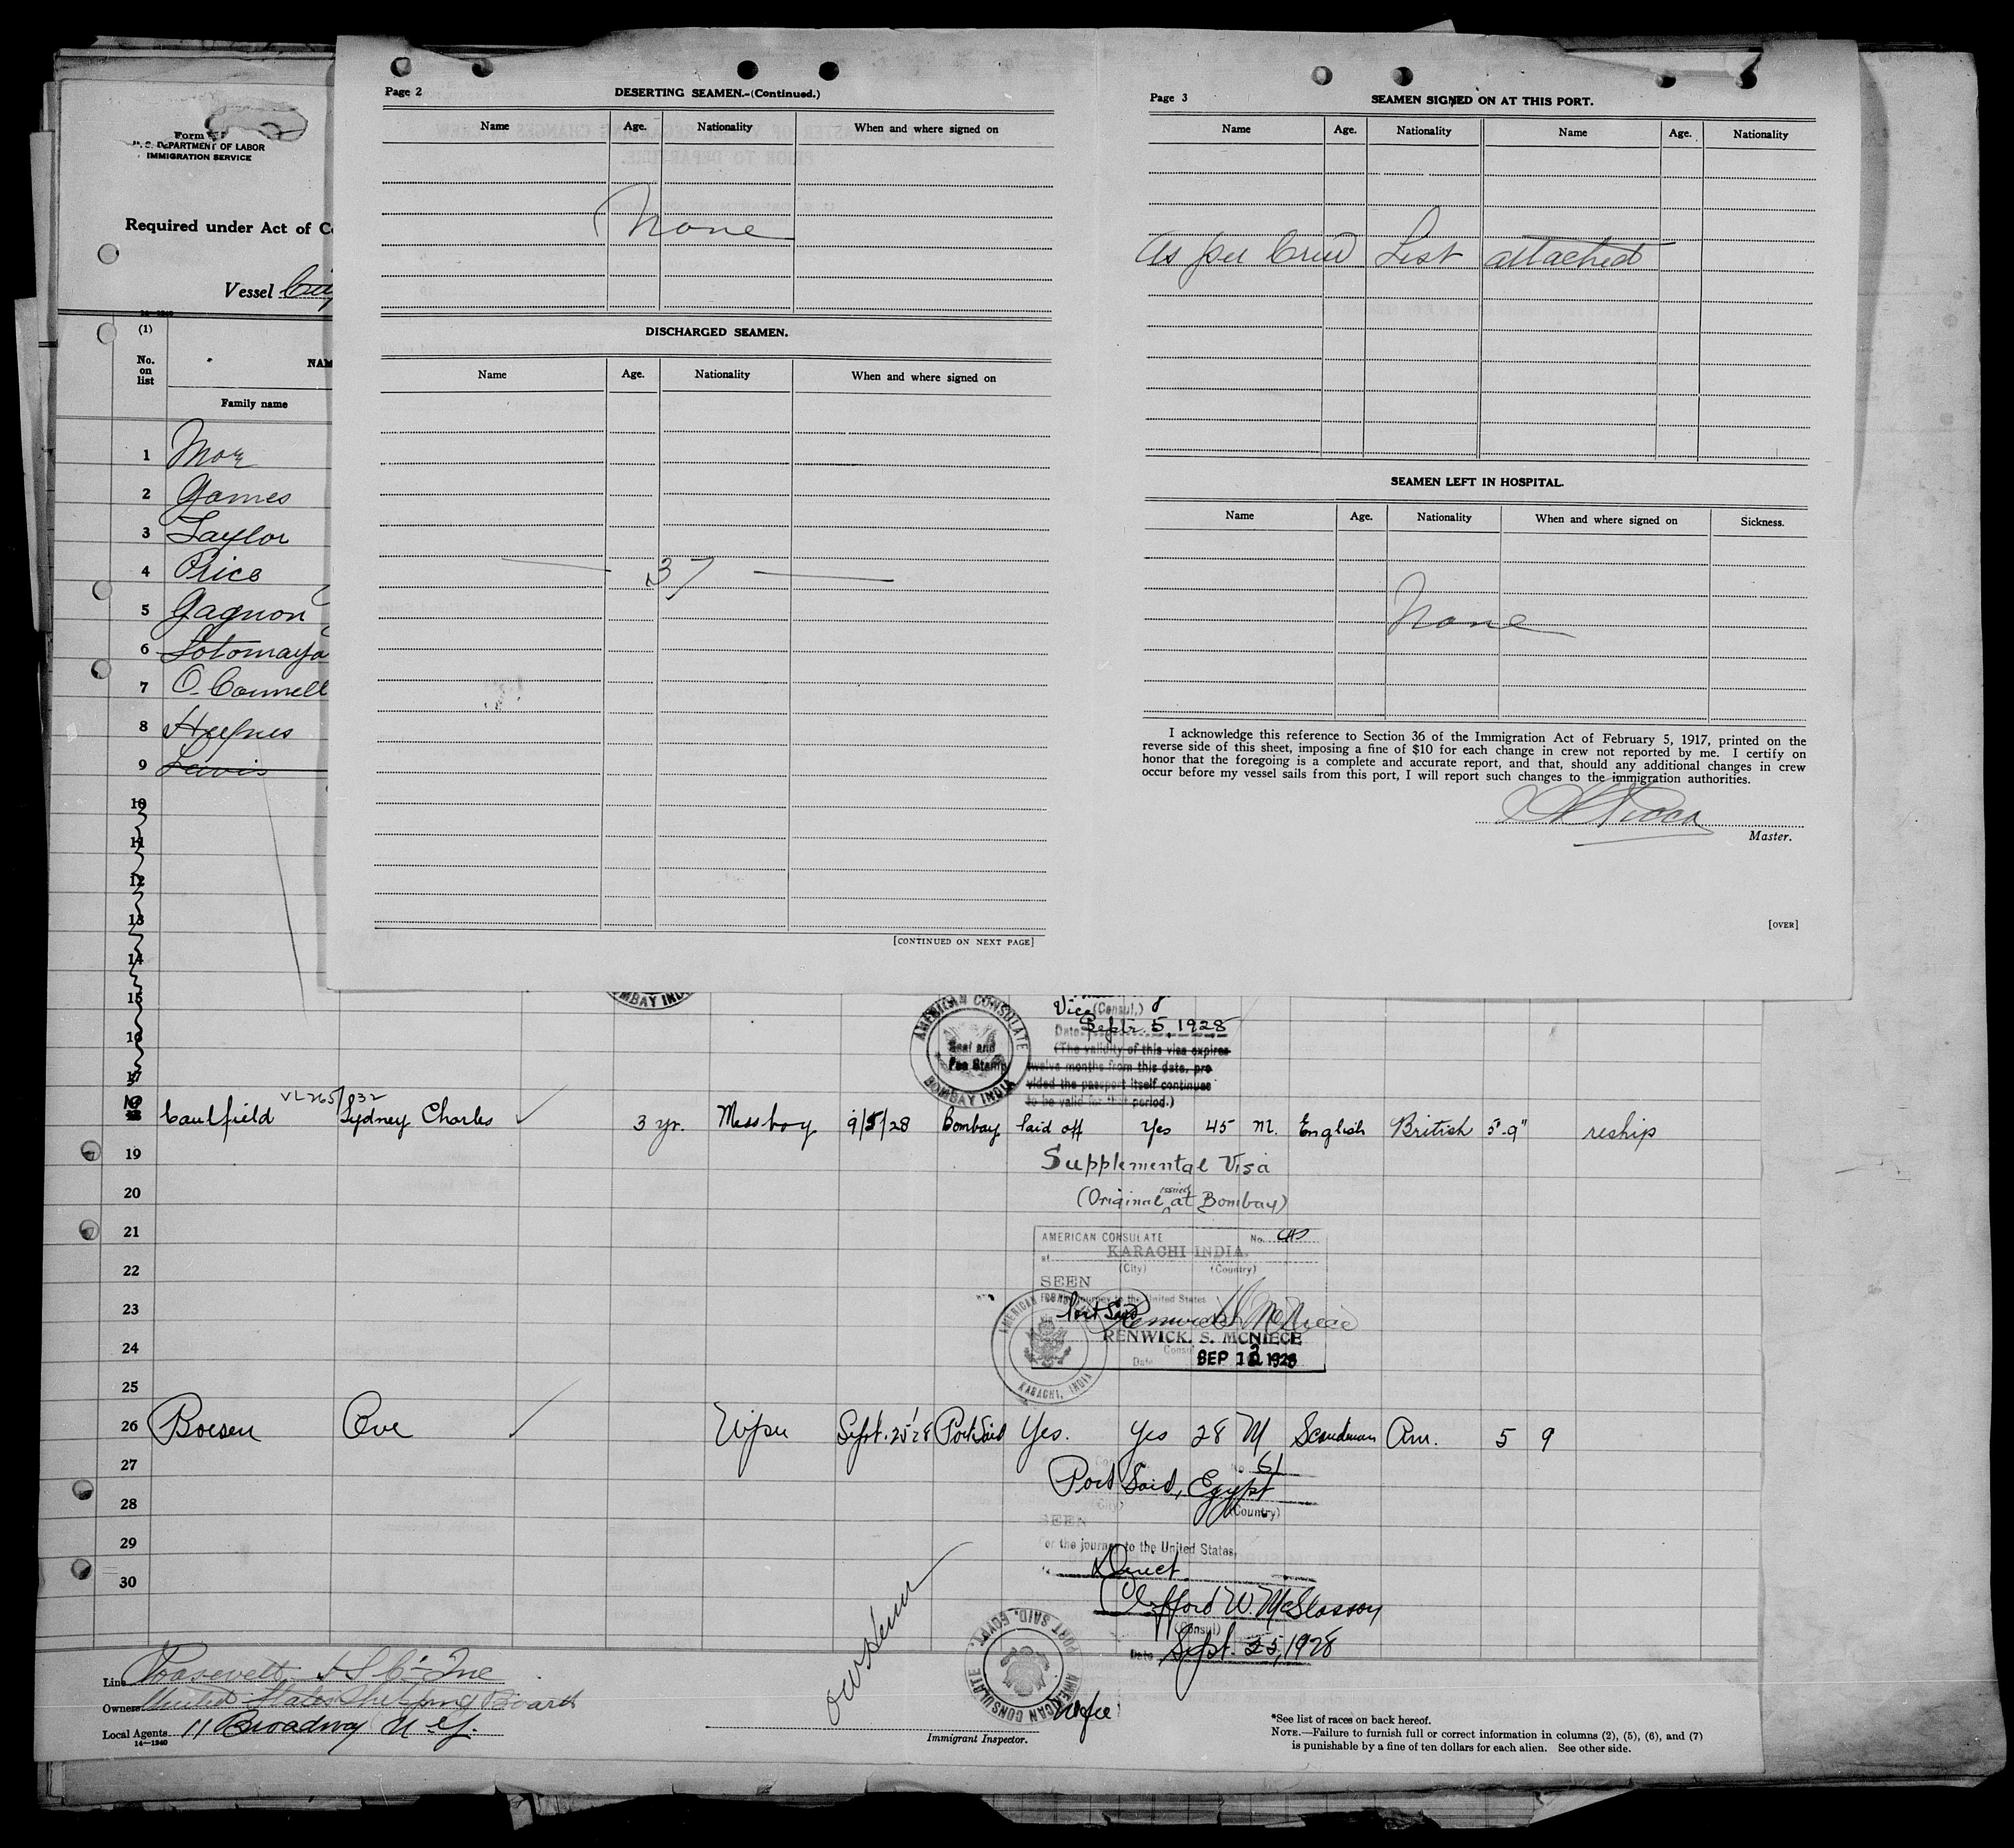 Page 2
DESERTING SEAMEN.-(Continued.)
Name Age. Nationality When and where signed on
None
DISCHARGED SEAMEN.
Name Age. Nationality When and where signed on
37
[CONTINUED ON NEXT PAGE]
Page 3
SEAMEN SIGNED ON AT THIS PORT.
Name Age. Nationality Name Age. Nationality
As per Crew List attached
SEAMEN LEFT IN HOSPITAL.
Name Age. Nationality When and where signed on Sickness.
None
I acknowledge this reference to Section 36 of the Immigration Act of February 5, 1917, printed on the
reverse side of this sheet, imposing a fine of $10 for each change in crew not reported by me. I certify on
honor that the foregoing is a complete and accurate report, and that, should any additional changes in crew
occur before my vessel sails from this port, I will report such changes to the immigration authorities.
Master.
[OVER]
Form
U. S. DEPARTMENT OF LABOR
IMMIGRATION SERVICE
Required under Act of
Vessel City
14—1240
(1)
No. on list
NAM
Family name
1
2 James
3 Taylor
4 Price
5 Gagnon
6 Sotomayo
7 O'Connell
8
9 Lewis
10
11
12
13
14
15
16
17
MBAY IND
AMERICAN CONSULATE
Seal and
Fee Stamp
BOMBAY INDIA
Vice (Consul,)
Date: Septr. 5, 1928
(The validity of this visa expires
twelve months from this date, pro
vided the passport itself continues
to be valid for that period.)
VL265/832
18 Caulfield Sydney Charles 3 yr. Messboy 9/5/28 Bombay Paid off Yes 45 M. English British 5'-9" reship
19
Supplemental Visa
20
(Original issued at Bombay)
21
AMERICAN CONSULATE No.
at KARACHI INDIA.
(City) (Country)
22
SEEN
23
journey to the United States
Port Said
Renwick S. McNiece
RENWICK. S. MCNIECE
Consul
24
Date SEP 12 1928
AMERICAN
KARACHI, INDIA
25
26 Boesen Ove Wiper Sept. 25'28 Port Said Yes. Yes 28 M Scandinavn Am. 5 9
27
No. 61
Port Said, Egypt
28
(City) (Country)
SEEN
29
or the journey to the United States,
Direct
30
Clifford W. McGlasson
(Consul)
Date Sept. 25, 1928
AMERICAN CONSULATE
PORT SAID, EGYPT.
Line Roosevelt S.S. Co. Inc
Owners United States Shipping Board
Local Agents 11 Broadway N.Y.
14—1240
Immigrant Inspector.
*See list of races on back hereof.
NOTE.—Failure to furnish full or correct information in columns (2), (5), (6), and (7)
is punishable by a fine of ten dollars for each alien. See other side.